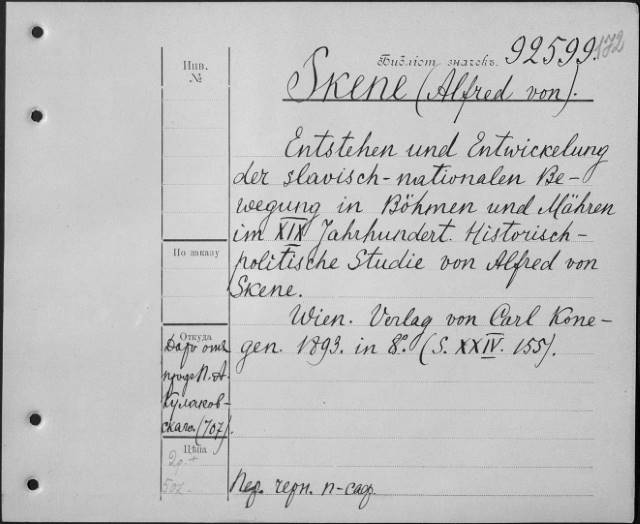 Библіот. значекъ. 92599.
172
Инв.
№
Skene (Alfred von).
Entstehen und Entwickelung
der slavisch-nationalen Be-
wegung in Böhmen und Mähren
im XIX Jahrhundert. Historisch-
politische Studie von Alfred von
Skene.
По заказу
Wien. Verlag von Carl Kone-
gen. 1893. in 8°. (S. XXIV. 155).
Откуда
Даръ отъ
проф. П. А.
Кулаков-
скаго. (707).
Цѣна
2р.
50к.
Пер. черн. п-саф.